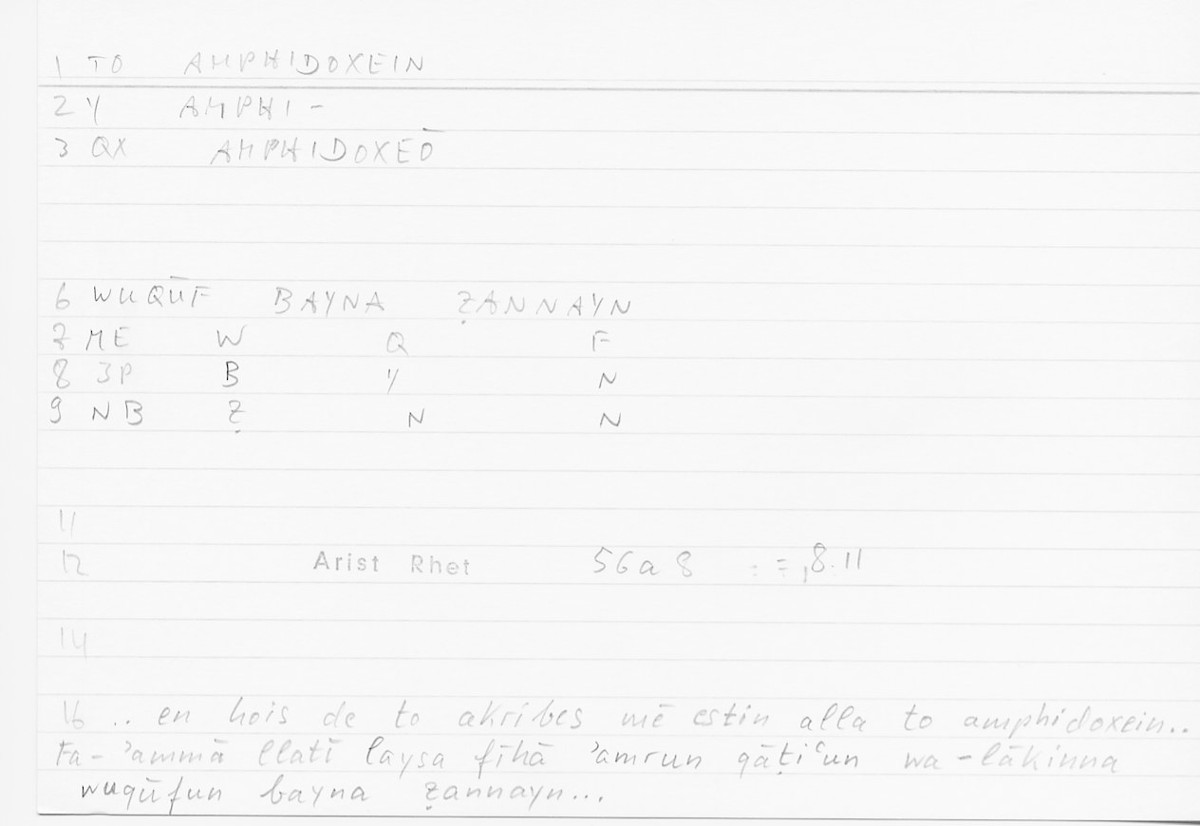 1 TO AMPHIDOXEIN
2 Y AMPHI-
3 QX AMPHIDOXEŌ
6 WUQŪF BAYNA ẒANNAYN
7 ME W Q F
8 3P B Y N
9 NB Ẓ N N
11
12 Arist Rhet 56a8 : = ,8.11
14
16 .. en hois de to akribes mē estin alla to amphidoxein..
Fa-ʾammā llatī laysa fīhā ʾamrun qāṭiʿun wa-lākinna
wuqūfun bayna ẓannayn...